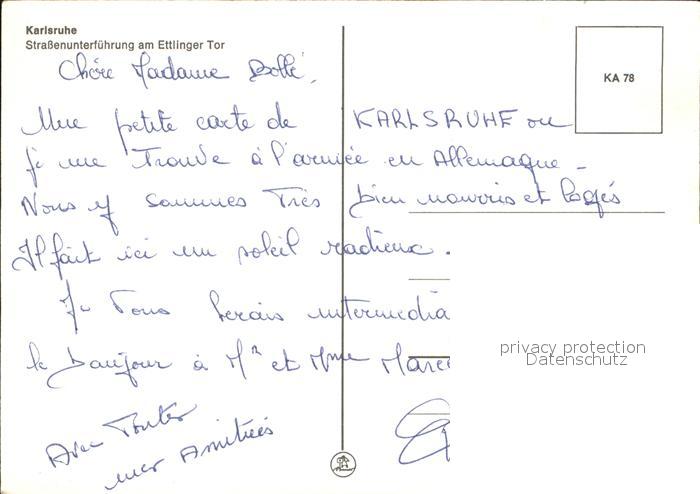 Karlsruhe
Straßenunterführung am Ettlinger Tor
KA 78
Chère Madame Bollé.
Une petite carte de KARLSRUHE ou
je me Trouve à l'armée en Allemagne -
Nous y sommes Très bien nourris et logés
Il fait ici un soleil radieux.
Je Vous serais intermédia
le bonjour à Mr et Mme Marce
Avec Toutes
mes Amitiés
privacy protection
Datenschutz